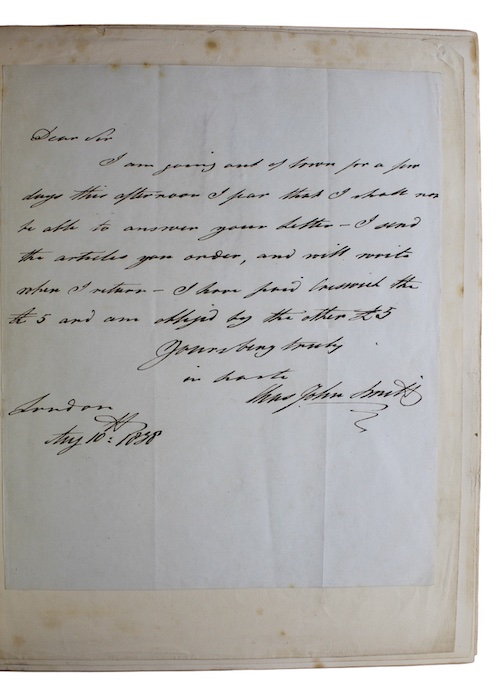 Dear Sir
I am going out of town for a few
days this afternoon I fear that I shall not
be able to answer your letter – I send
the articles you order, and will write
when I return – I have paid Creswick the
£5 and am obliged by the other £5
Yours very truly
in haste
Chas John Smith
London
Aug 10th: 1838